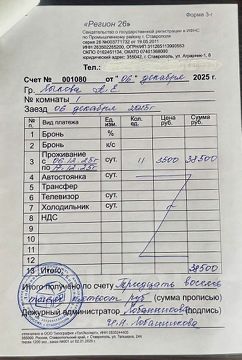 Форма 3-г
«Регион 26»
Свидетельство о государственной регистрации в ИФНС
по Промышленному району г. Ставрополя
серия 26 №003771732 от 19.05.2011
ИНН 263502265200, ОГРНИП 311265113900553
ОКПО 0162451134, ОКАТО 07401368000
юридический адрес: 355042, г. Ставрополь, ул.
Тел.:
Счет № 001080 от "06" декабря 2025 г.
Гр. Лыкова А. Е.
№ комнаты 1
Заезд 06 декабря 2025г.
№ Вид платежа Ед. изм. Кол. сут. Цена руб. Сумма руб.
1 Бронь %
2 Бронь к/с
3 Проживание с 06.12.25г по 17.12.25г сут. 11 3500 38500
4 Автостоянка сут.
5 Трансфер
6 Телевизор сут.
7 Холодильник сут.
8 НДС
9
10
11
12
13 Итого: 38500
Итого получено по счету Тридцать восемь
тысяч пятьсот руб (сумма прописью)
Дежурный администратор (подпись)